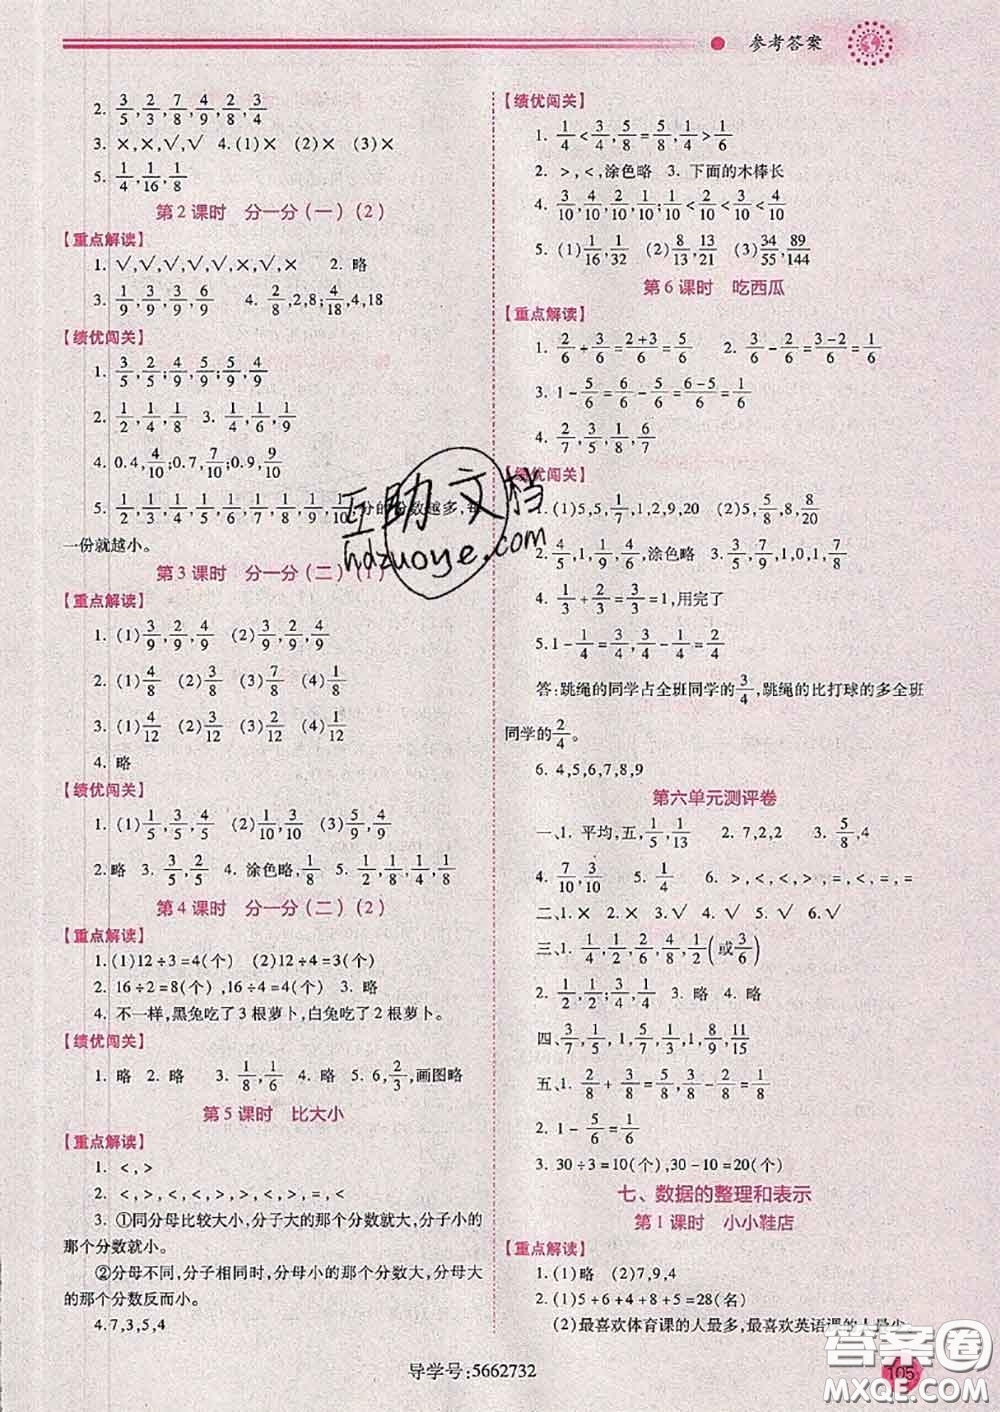 参考答案
2. 3/5,2/4,7/8,4/9,2/8,3/4
3. ×,×,√,√ 4.(1)× (2)× (3)×
5. 1/4,1/16,1/8
第2课时 分一分(一)(2)
【重点解读】
1. √,√,√,√,×,√,× 2. 略
3. 1/9,3/9,3/9,6/9 4. 2/8,2,8;4/18,4,18
【绩优闯关】
1. 3/5,2/5;4/9,5/9;5/9,4/9
2. 1/2,1/4,1/8 3. 1/4,1/6,1/8
4. 0.4,4/10;0.7,7/10;0.9,9/10
5. 1/2,1/3,1/4,1/5,1/6,1/7,1/8,1/9,1/10,分的份数越多,每
一份就越小。
第3课时 分一分(二)(1)
【重点解读】
1. (1)3/9,2/9,4/9 (2)3/9,2/9,4/9
2. (1)4/8 (2)4/8 (3)7/8 (4)1/8
3. (1)4/12 (2)4/12 (3)2/12 (4)2/12
4. 略
【绩优闯关】
1. (1)1/5,3/5,4/5 (2)1/10,3/10 (3)5/9,4/9
2.略 3. 3/5,2/5 4. 涂色略,1/8 5. 1/2,1/4,1/8,1/8
第4课时 分一分(二)(2)
【重点解读】
1. (1)12÷3=4(个) (2)12÷4=3(个)
2. 16÷2=8(个),16÷4=4(个) 3. 略
4. 不一样,黑兔吃了3根萝卜,白兔吃了2根萝卜。
【绩优闯关】
1. 略 2. 略 3. 1/8,1/6 4. 略 5. 6,2/3,画图略
第5课时 比大小
【重点解读】
1. <,>
2. <,<,>,<,>,<,>,>,=,<
3. ①同分母比较大小,分子大的那个分数就大,分子小的
那个分数就小。
②分母不同,分子相同时,分母小的那个分数大,分母大
的那个分数反而小。
4.7,3,5,4
【绩优闯关】
1. 1/4<3/4,5/8=5/8,1/4>1/6
2. >,<,涂色略 3. 下面的木棒长
4. 3/10,4/10,2/10,1/10;1/10<2/10<3/10<4/10
5. (1)1/16,1/32 (2)8/13,13/21 (3)34/55,89/144
第6课时 吃西瓜
【重点解读】
1. 2/6+3/6=2+3/6=5/6 2. 3/6-2/6=3-2/6=1/6
3. 1-5/6=6/6-5/6=6-5/6=1/6
4. 2/7,3/5,1/8,6/7
【绩优闯关】
1. (1)5,5,1/7,1,2,9,20 (2)5,5/8,5/8,8/20
2. 2/4,1,1/4,涂色略 3. 2/7,3/7,1,0,1,1/7
4. 1/3+2/3=3/3=1,用完了
5.1-1/4=3/4,3/4-1/4=2/4
答:跳绳的同学占全班同学的3/4,跳绳的比打球的多全班
同学的2/4。
6. 4,5,6,7,8,9
第六单元测评卷
一、1. 平均,五,1/5,1/13 2. 7,2,2 3. 5/8,4
4. 7/10,3/10 5. 1/4 6. >,<,<,>,=,>,=,<,=
二、1.× 2.× 3.√ 4.√ 5.√ 6.√
三、1. 1/4,1/2,2/6,4/8,1/2(或3/6)
2. 1/2,1/2;1/8,1/8 3. 略 4. 略
四、3/7,1/5,1/7,3/5,1,8/9,11/15
五、1. 2/8+3/8=5/8
2. 1-5/6=1/6
3. 30÷3=10(个),30-10=20(个)
七、数据的整理和表示
第1课时 小小鞋店
【重点解读】
1. (1)略 (2)7,9,4
2. (1)5+6+4+8+5=28(名)
(2)最喜欢体育课的人最多,最喜欢英语课的人最少
导学号:5662732
105
互助文档
hdzuoye.com
答案圈
MXQE.COM